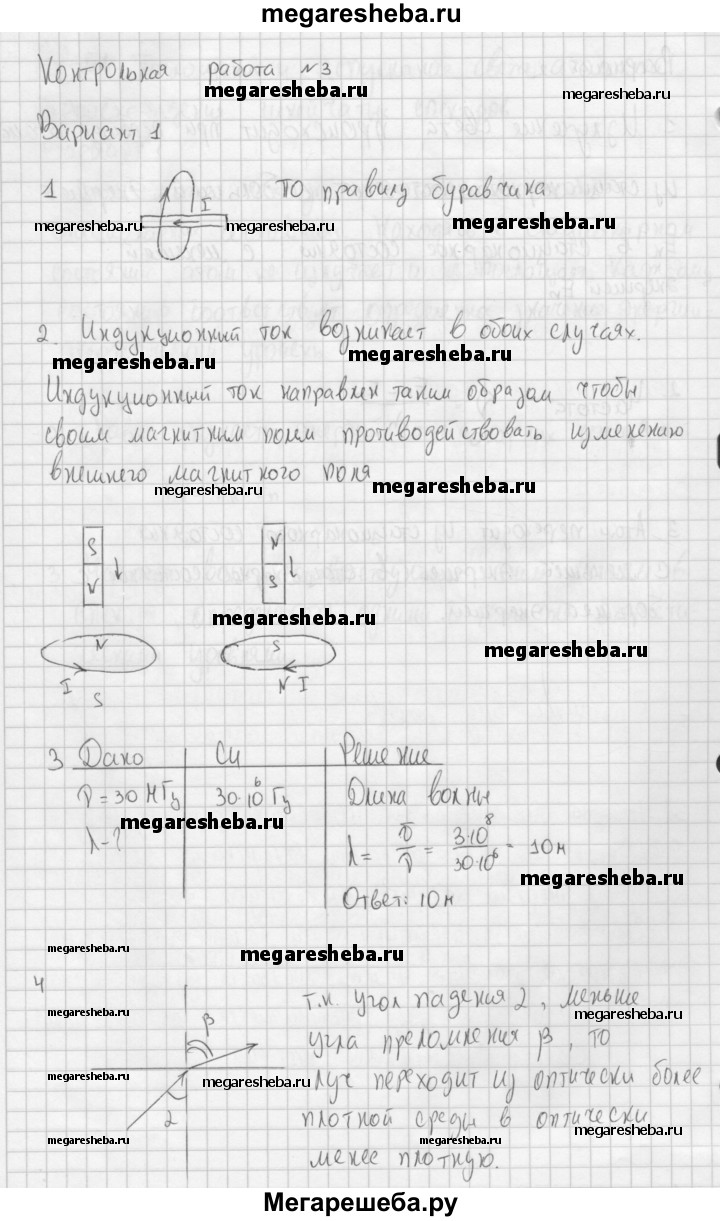 megaresheba.ru
Контрольная работа №3
megaresheba.ru
megaresheba.ru
Вариант 1
1 I По правилу буравчика
megaresheba.ru
megaresheba.ru
megaresheba.ru
2. Индукционный ток возникает в обоих случаях.
megaresheba.ru
megaresheba.ru
Индукционный ток направлен таким образам чтобы
своим магнитным полем противодействовать изменению
внешнего магнитного поля
megaresheba.ru
megaresheba.ru
S N
N S
megaresheba.ru
N S
megaresheba.ru
I N I
S
3 Дано СИ Решение
ν = 30 МГц 30·10⁶ Гц Длина волны
megaresheba.ru
λ - ?
λ = υ/ν = 3·10⁸/30·10⁶ = 10м
megaresheba.ru
Ответ: 10м
megaresheba.ru
megaresheba.ru
4
т.к. угол падения 2, меньше
megaresheba.ru
megaresheba.ru
β
угла преломления β, то
луч переходит из оптически более
megaresheba.ru
megaresheba.ru
2
плотной среды в оптически
megaresheba.ru
megaresheba.ru
megaresheba.ru
менее плотную.
Мегарешеба.ру